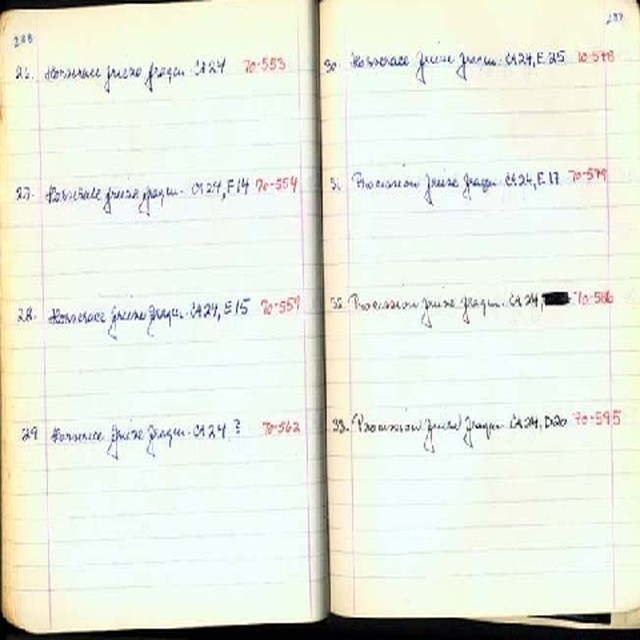 26. Horserace frieze fragm. CA 24 70-553
27. Horserace frieze fragm. CA 24, F14 70-554
28. Horserace frieze fragm. CA 24, E15 70-557
29 Horserace frieze fragm. CA 24, ? 70-562
30. Horserace frieze fragm. CA 24, E 25 70-578
31. Procession frieze fragm. CA 24, E 17 70-579
32. Procession frieze fragm. CA 24, 70-586
33. Procession frieze fragm. CA 24, D20 70-595